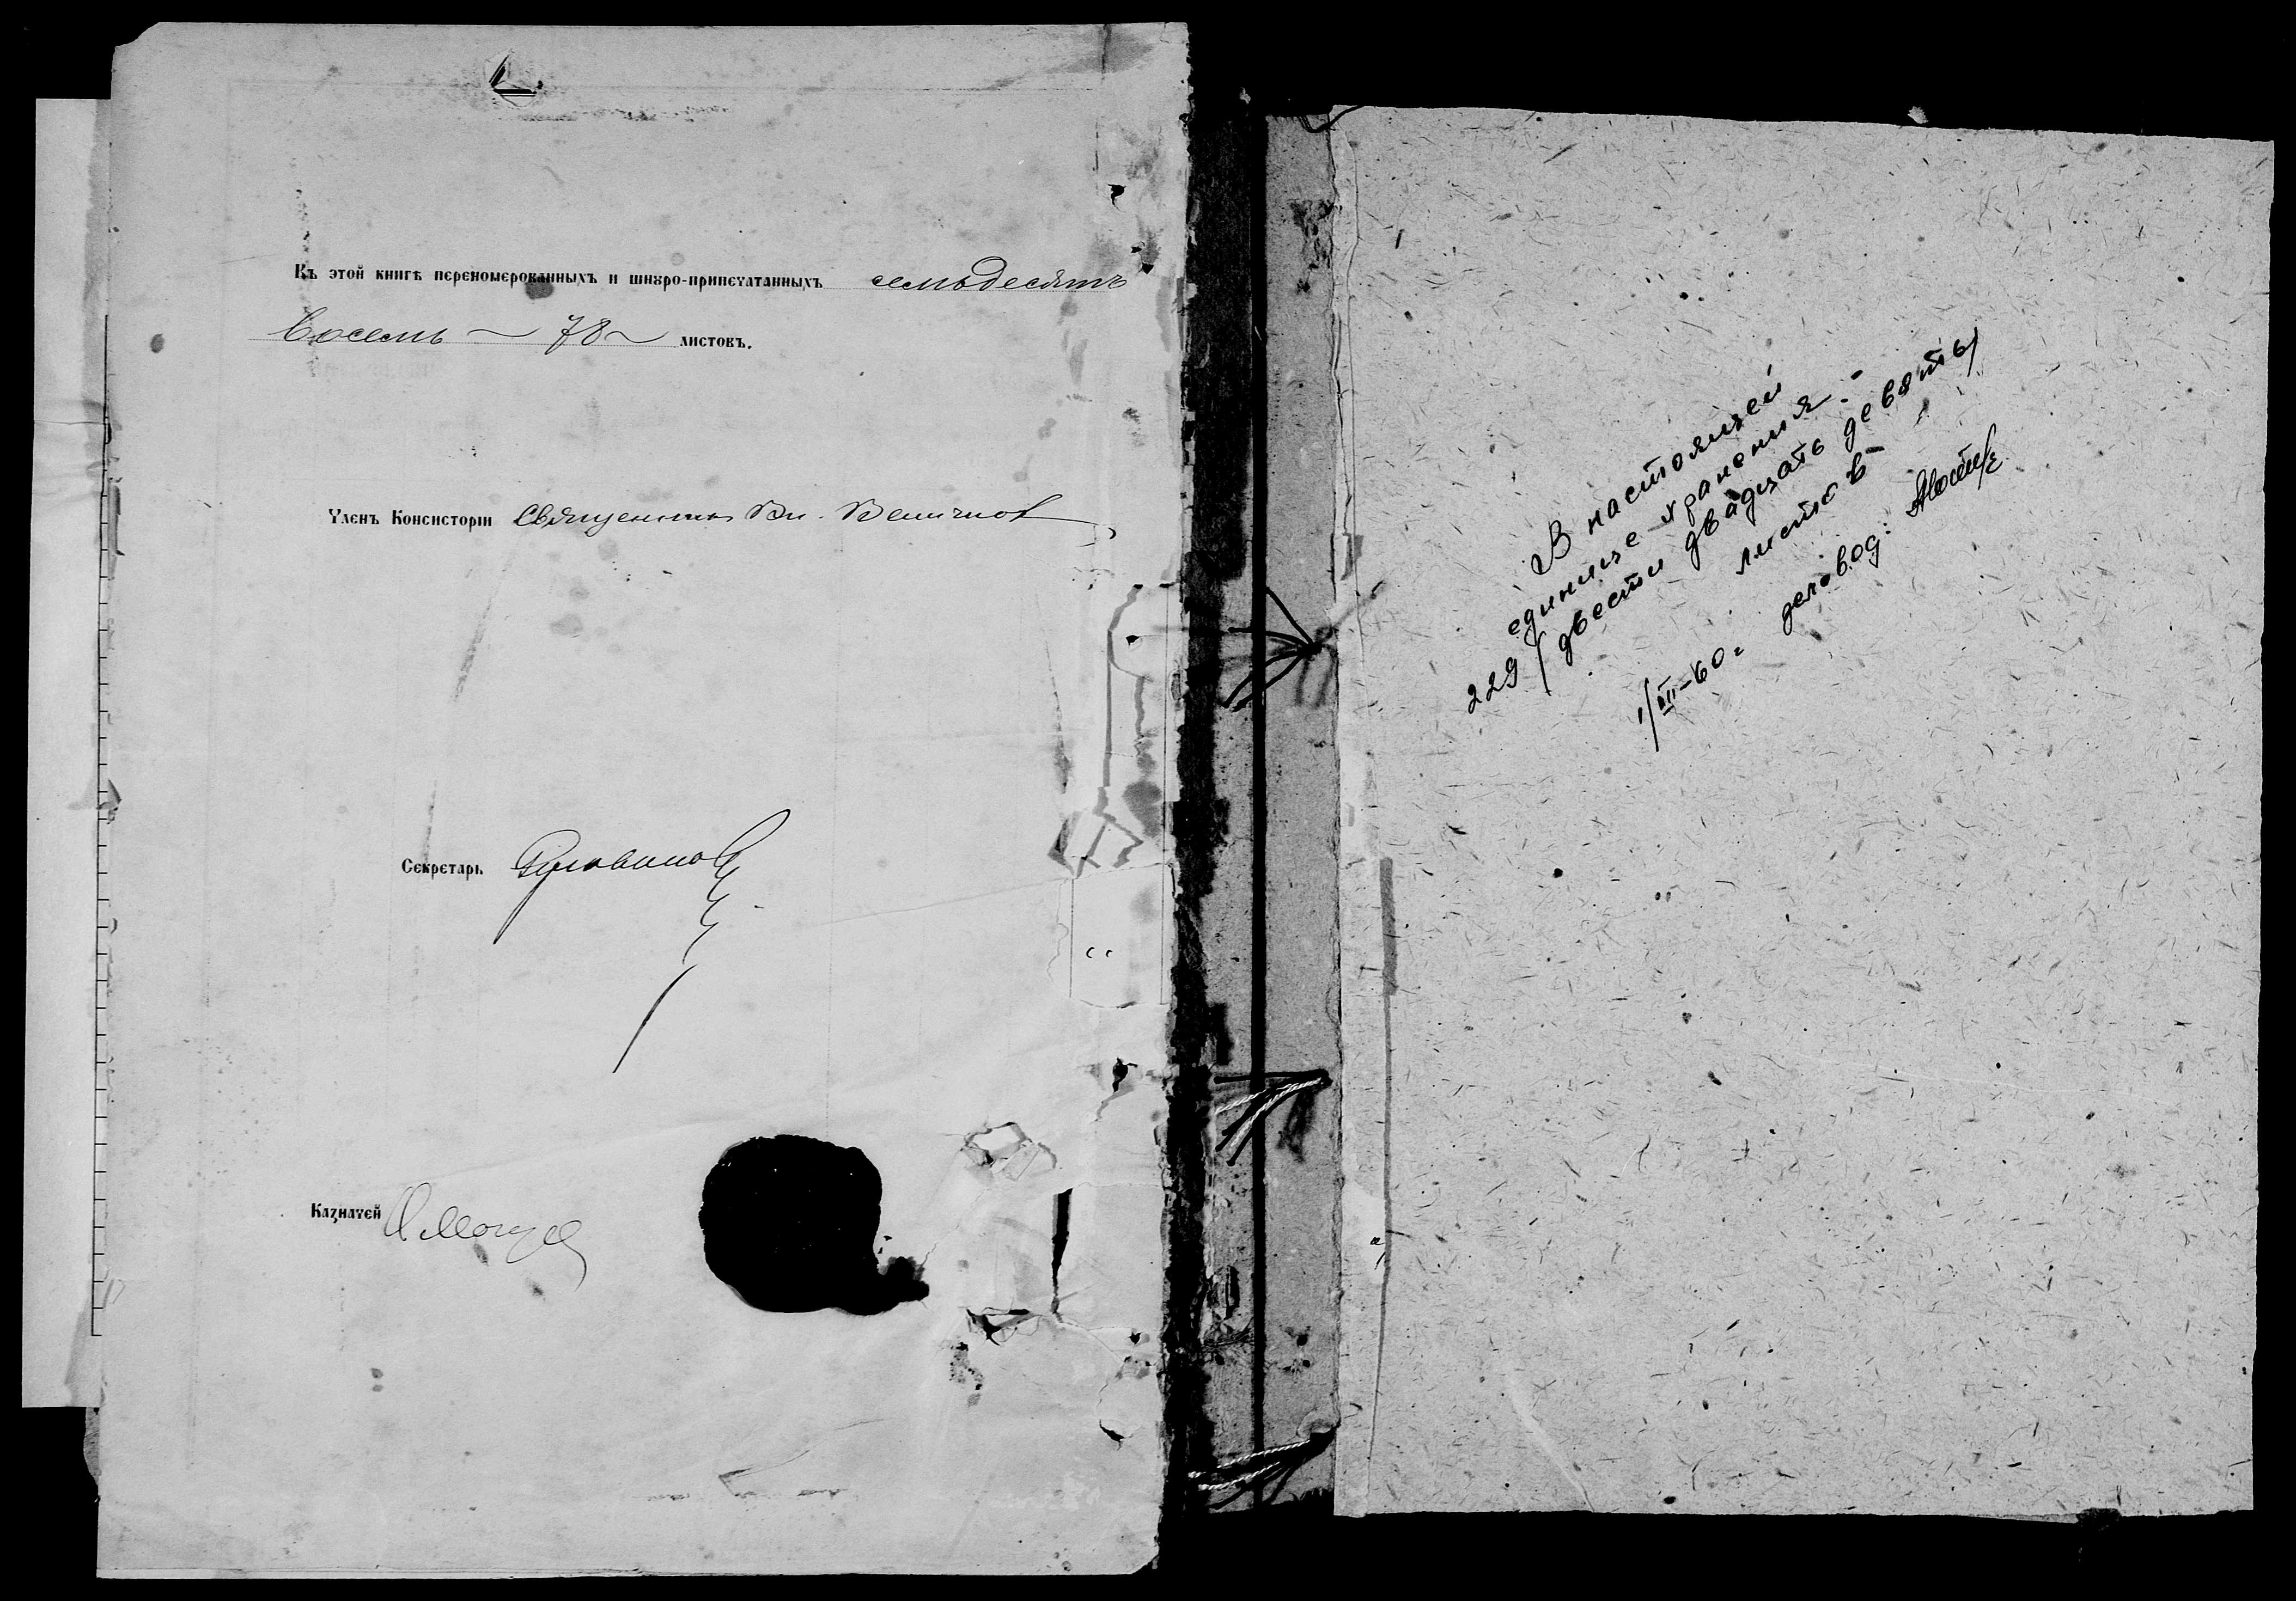 Въ этой книгѣ переномерованныхъ и шнуро-припечатанныхъ семьдесятъ
восемь ~ 78 ~ листовъ.
Членъ Консисторіи Священникъ Вл.
Секретарь
Казначей
В настоящей
единице хранения:-
229 / двести двадцать девять/
листов
1/III-60г деловод: